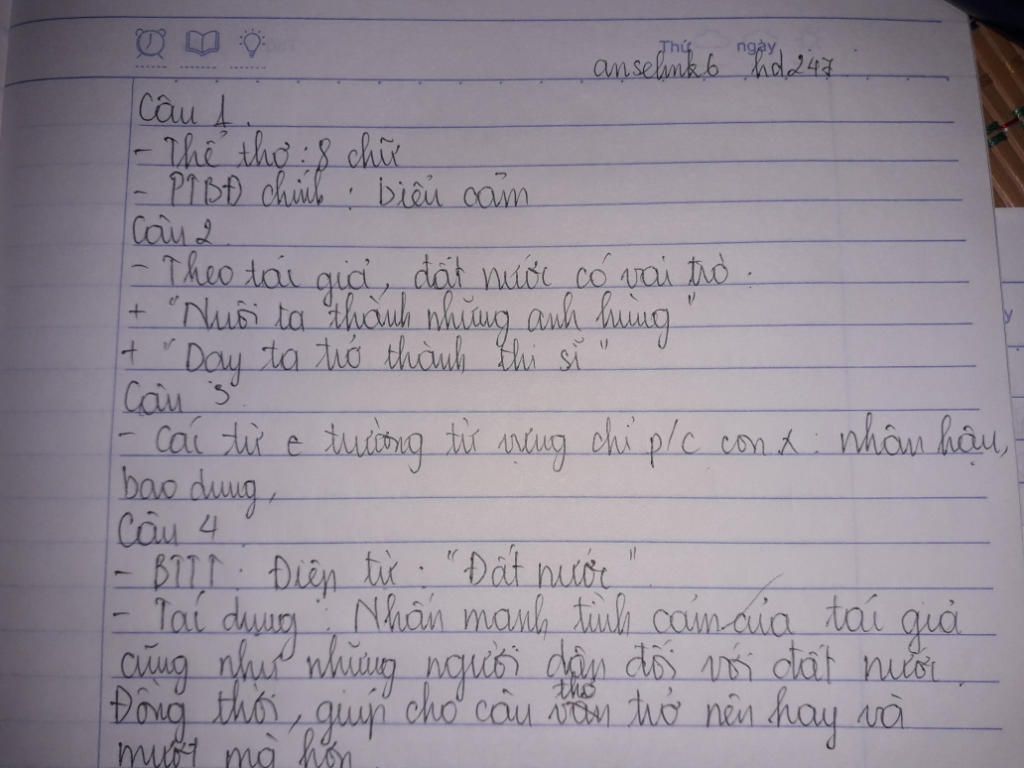 Thứ ngày
anselink6 hd247
Câu 1.
- Thể thơ: 8 chữ
- PTBĐ chính: biểu cảm
Câu 2
- Theo tác giả, đất nước có vai trò:
+ "Nuôi ta thành những anh hùng"
+ "Dạy ta trở thành thi sĩ"
Câu 3
- Các từ e trường từ vựng chỉ p/c con x: nhân hậu,
bao dung,
Câu 4
- BTTT: Điệp từ: "Đất nước"
- Tác dụng: Nhấn mạnh tình cảm của tác giả
cũng như những người dân đối với đất nước.
Đồng thời, giúp cho câu thơ trở nên hay và
mượt mà hơn